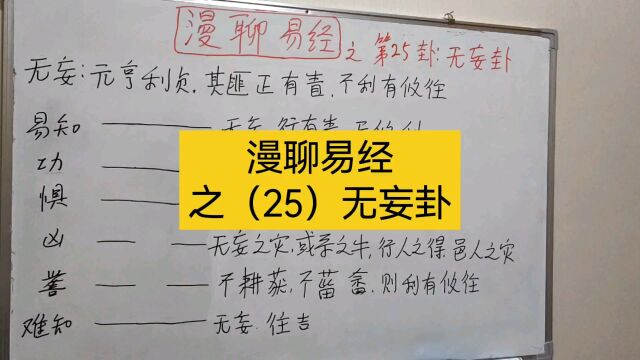 漫聊易经之第25卦:无妄卦
无妄:元亨利贞,其匪正有眚,不利有攸往
易知
功
惧
漫聊易经
之（25）无妄卦
凶 无妄之灾,或系之牛,行人之得,邑人之灾
誉 不耕获,不菑畬,则利有攸往
难知 无妄.往吉